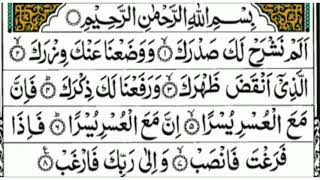 بِسْمِ اللهِ الرَّحْمٰنِ الرَّحِيْمِ
اَلَمْ نَشْرَحْ لَكَ صَدْرَكَ ۝١ وَوَضَعْنَا عَنْكَ وِزْرَكَ ۝٢
الَّذِيْٓ اَنْقَضَ ظَهْرَكَ ۝٣ وَرَفَعْنَا لَكَ ذِكْرَكَ ۝٤ فَاِنَّ
مَعَ الْعُسْرِ يُسْرًا ۝٥ اِنَّ مَعَ الْعُسْرِ يُسْرًا ۝٦ فَاِذَا
فَرَغْتَ فَانْصَبْ ۝٧ وَاِلٰى رَبِّكَ فَارْغَبْ ۝٨